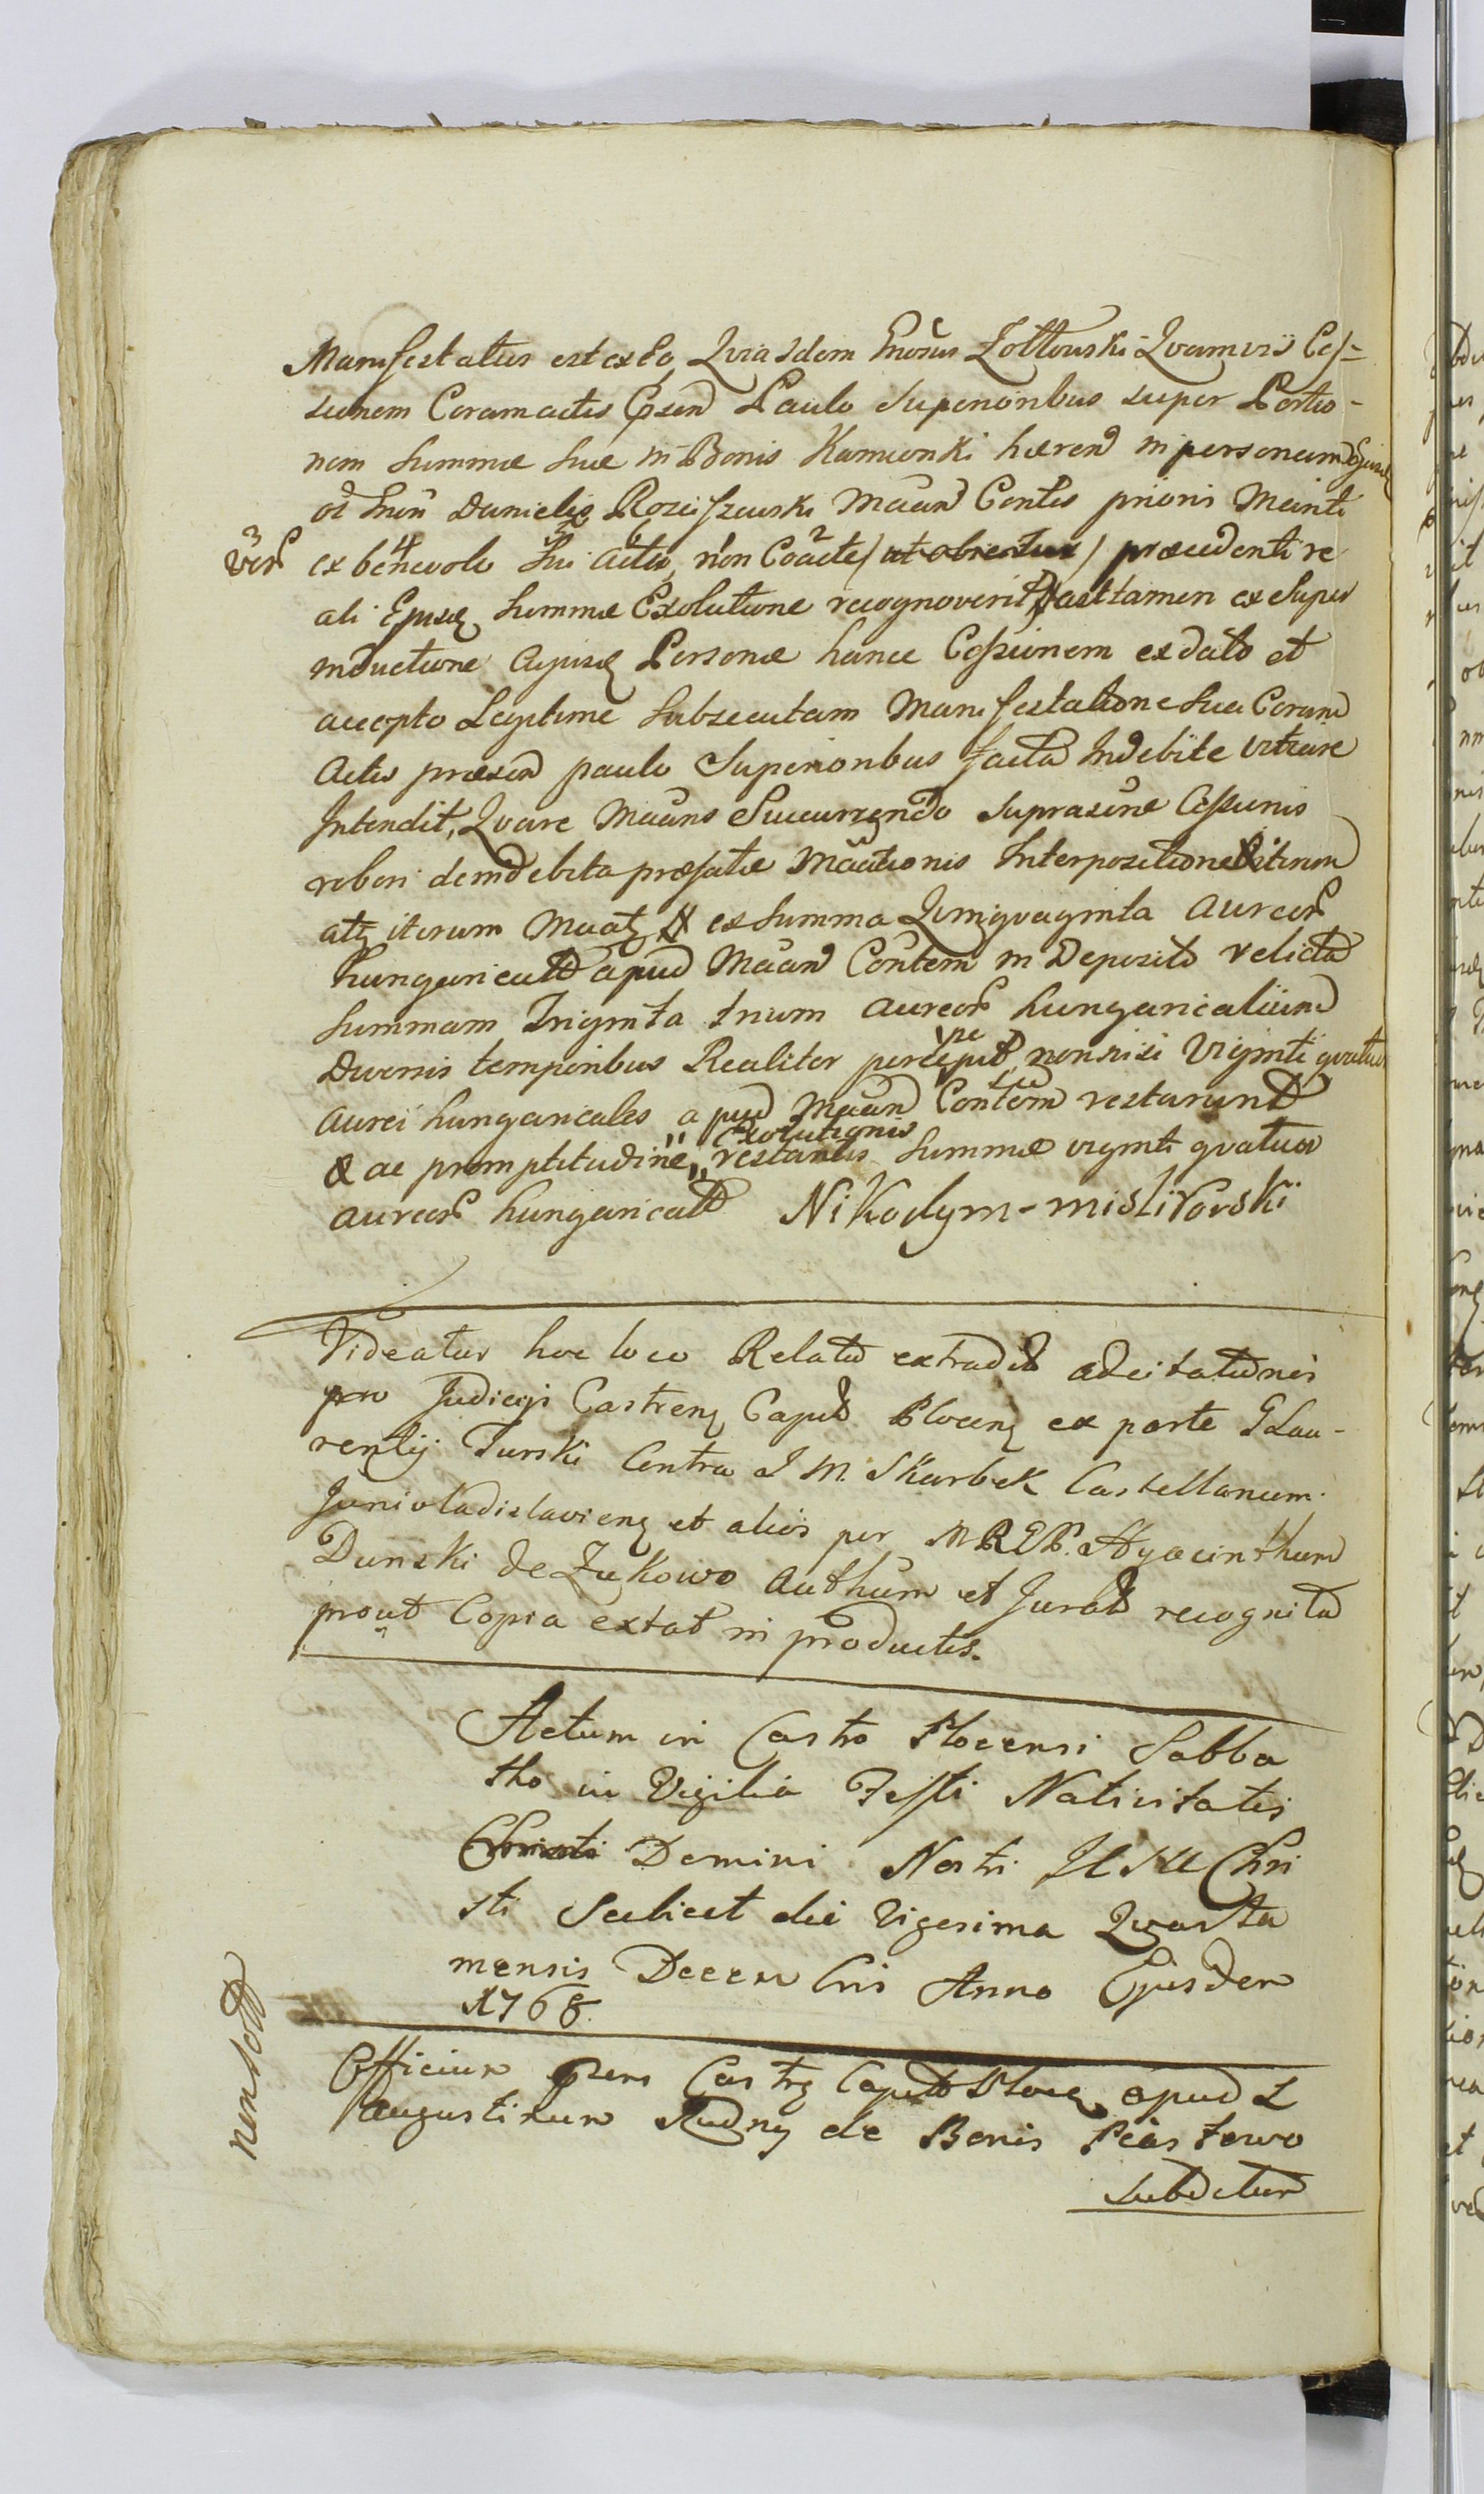 Manifestatus est ex Eo, Quia Idem Gnosus Zołtowski Quamvis Ces=
sionem Coram actis Ppsen Paulo Superioribus super Portio-
nem Summæ suæ in Bonis Kamionki hæren in personam
Danielis Rościszewski Maan Contis prioris
ver ex benevole sui actu, non Coacte / ut obventus / præcedenti re
ali Ejusq Summæ Exolutione recognoverit, asttamen ex Super
inductione Cujusq Personæ hance Cessionem ex dato et
accepto Legitime Subsecutam Manifestatione sua Coram
Actis præsen paulo Superioribus facta Indebite vitiare
Intendit, Quare Maans Succurrendo Suprascrie Cessionis
robori de indebita præfatæ Maationis Interpositione iterum
atq iterum Maatq ex Summa Quinquaginta Aureor
hungaricals apud Maan Contem in Deposito relicta
Summam Triginta trium Aureor hungaricalium
Diversis temporibus Realiter percepit, nonnisi Viginti quatuor
Aurei hungaricales apud Maan Contem restarunt
& ac promptitudine Exolutionis restantis Summæ viginti quatuor
aureor hungaricals Nikodym-misliborski
Videatur hoc loco Relatio extradit adcitationis
pro Judicijs Castrens Capit Plocens ex parte G Lau-
rentij Turski Contra I M. Skarbek Castellanum
Junivladislaviens et alios per M R P. Hyacinthum
Dunski de Żukowo authum et Jurat recognita
prout Copia extat in productis.
Actum in Castro Plocensi Sabba
tho in Vigilia Festi Nativitatis
Christi Domini Nostri JESU Chri
sti Scilicet die Vigesima Quarta
mensis Decembris Anno Ejusdem
1768.
Officium Ppens Castr Capit Ploc apud L
Augustinum Rudny de Bonis Piastowo
subditum
non solt